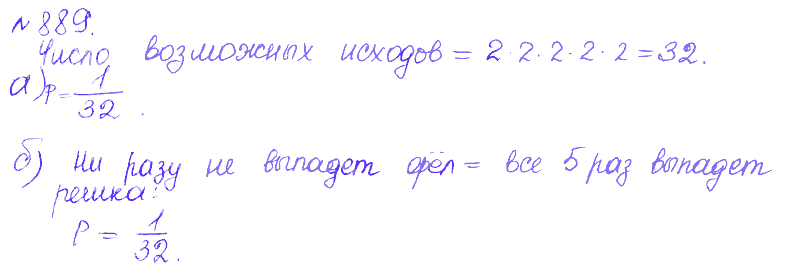 №889.
Число возможных исходов = 2·2·2·2·2=32.
а) P = 1/32.
б) Ни разу не выпадет орёл = все 5 раз выпадет
решка:
P = 1/32.